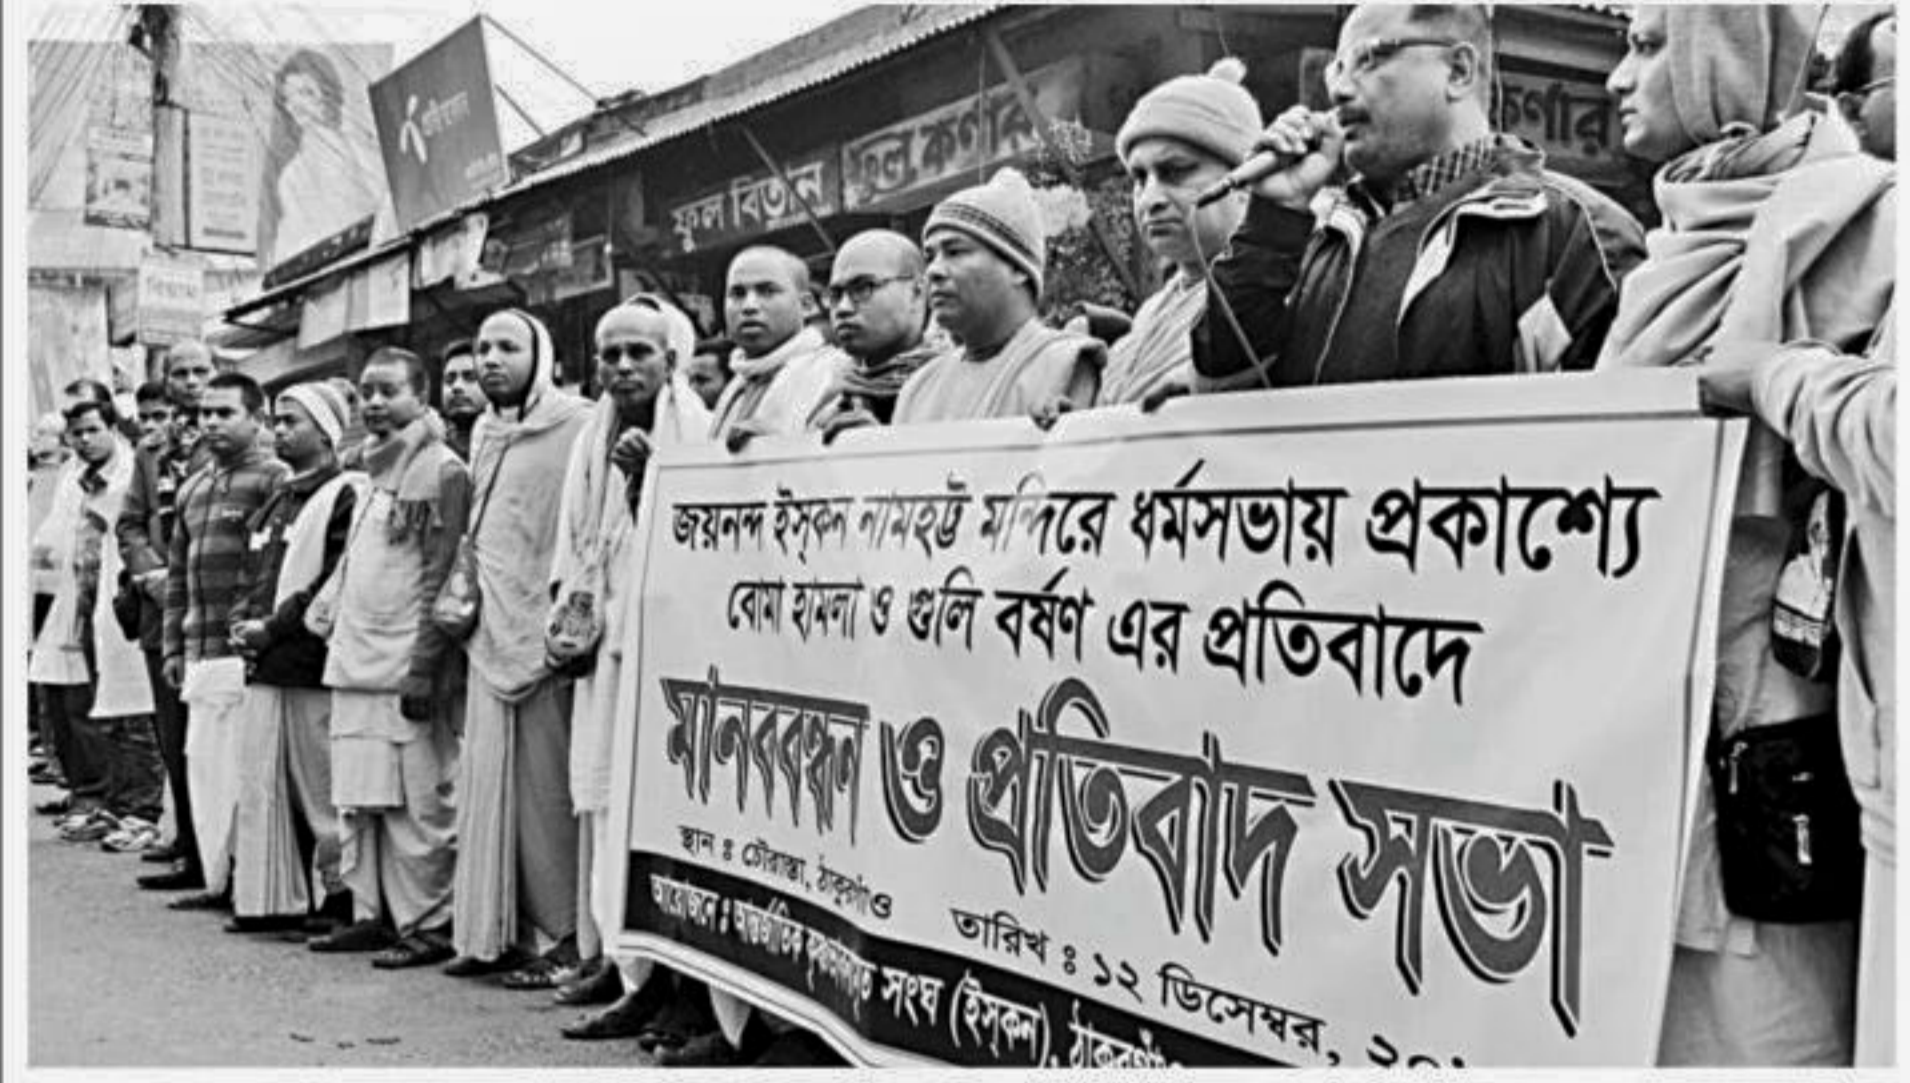 ফুল বিতান
ফুল কর্ণার
কর্ণার
জয়নন্দ ইস্‌কন নামহট্ট মন্দিরে ধর্মসভায় প্রকাশ্যে
বোমা হামলা ও গুলি বর্ষণ এর প্রতিবাদে
মানববন্ধন ও প্রতিবাদ সভা
স্থান : চৌরাস্তা, ঠাকুরগাঁও
তারিখ : ১২ ডিসেম্বর,
আয়োজনে : আন্তর্জাতিক কৃষ্ণভাবনামৃত সংঘ (ইস্‌কন), ঠাকুরগাঁও